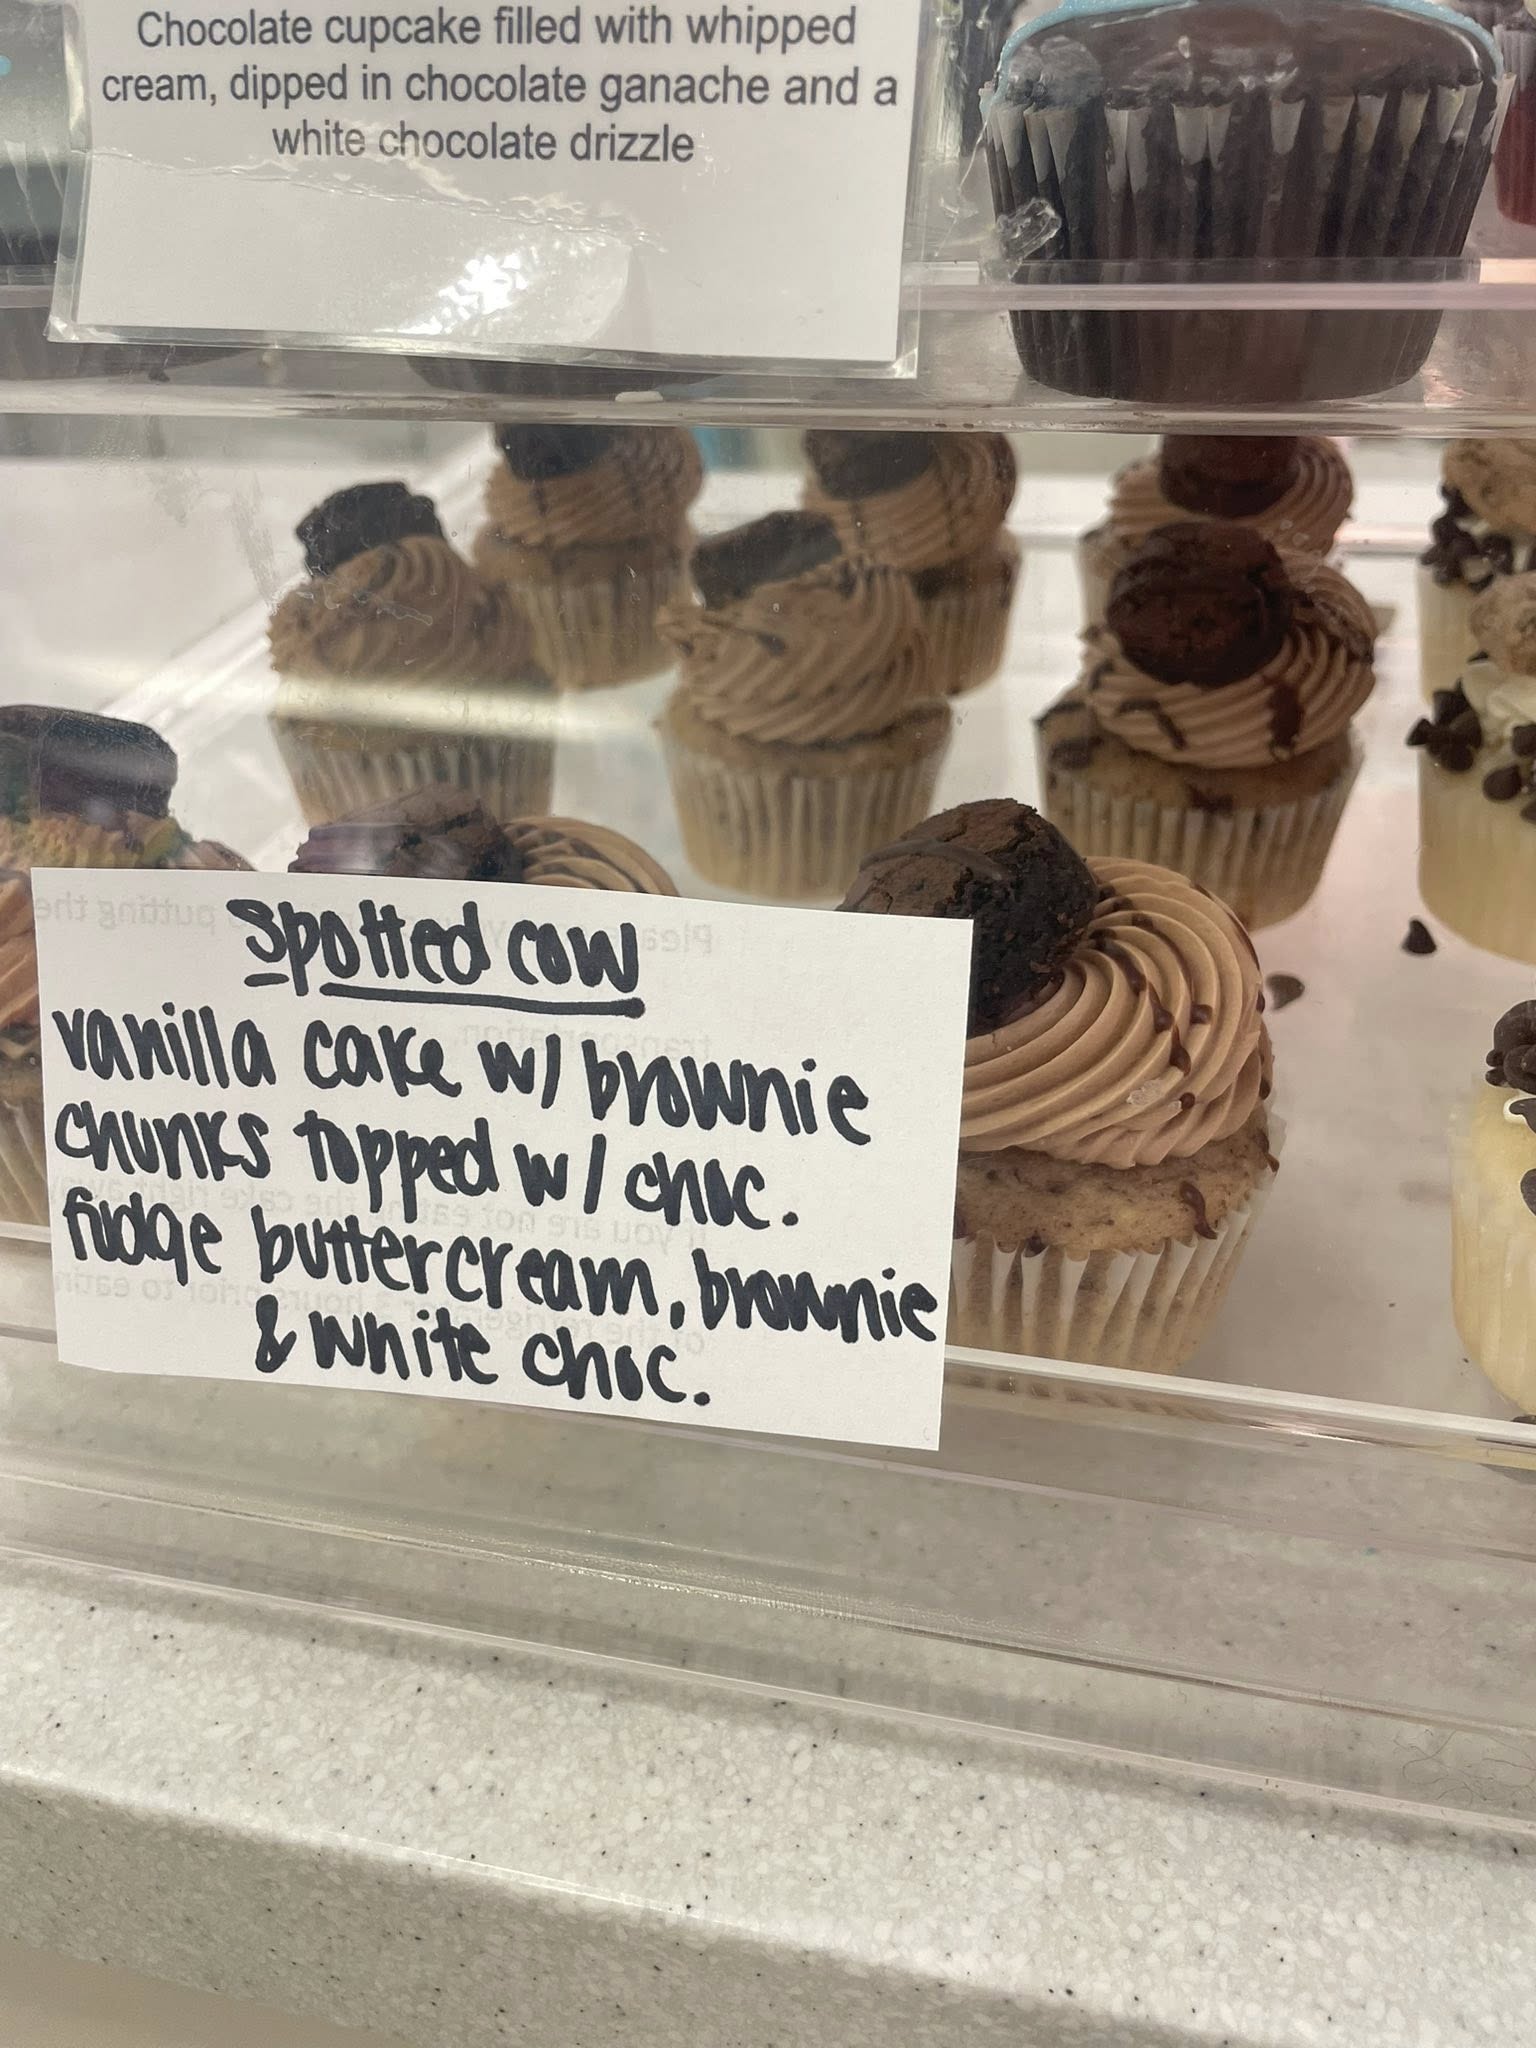 Chocolate cupcake filled with whipped
cream, dipped in chocolate ganache and a
white chocolate drizzle
Spotted cow
vanilla cake w/ brownie
chunks topped w/ choc.
fudge buttercream, brownie
& white choc.